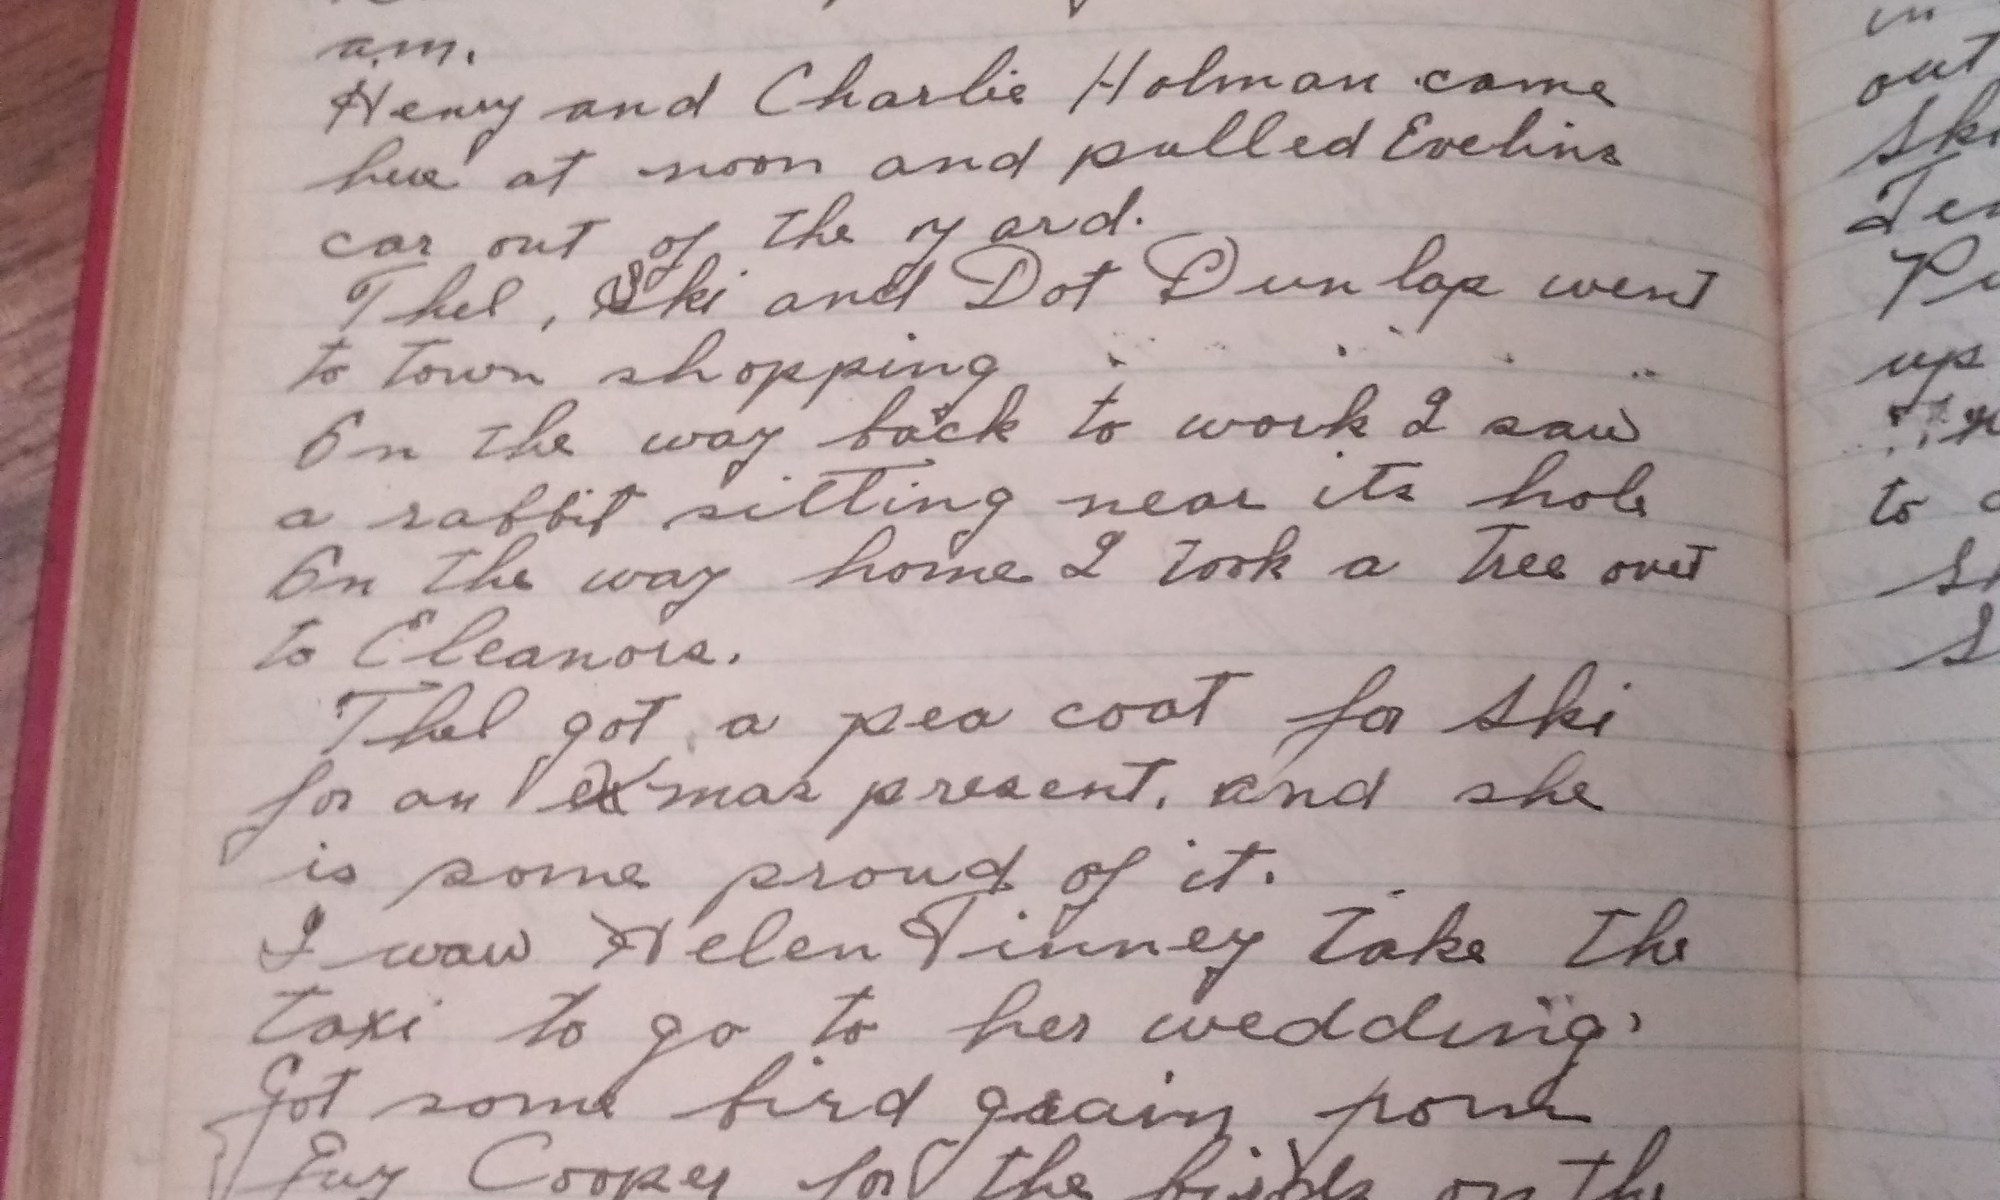 a.m.
Henry and Charlie Holman came
here at noon and pulled Evelins
car out of the yard.
Thel, Ski and Dot Dunlap went
to town shopping
On the way back to work I saw
a rabbit sitting near its hole
On the way home I took a tree over
to Eleanors.
Thel got a pea coat for Ski
for an x'mas present, and she
is some proud of it.
I waw Helen Tinney take the
taxi to go to her wedding.
Got some bird grain from
Guy Cooper for the birds on the
in
out
Ski
up
to